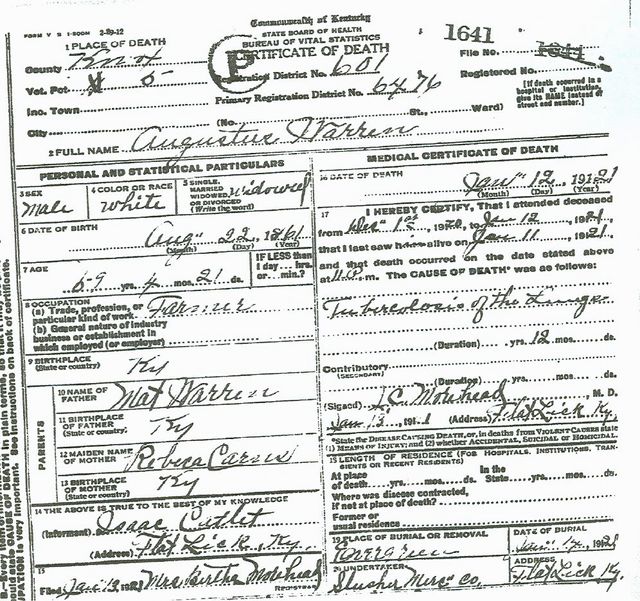 Commonwealth of Kentucky
FORM V S 1-500M 2-29-12
STATE BOARD OF HEALTH
BUREAU OF VITAL STATISTICS
CERTIFICATE OF DEATH
1641
File No. 1641
1 PLACE OF DEATH
County Knox
Registration District No. 601
Registered No.
Vot. Pct 5
Primary Registration District No. 6476
[If death occurred in a hospital or institution, give its NAME instead of street and number.]
Inc. Town
City (No. St., Ward)
2 FULL NAME Augustus Warren
PERSONAL AND STATISTICAL PARTICULARS
3 SEX Male
4 COLOR OR RACE White
5 SINGLE, MARRIED, WIDOWED, OR DIVORCED (Write the word) Widowed
6 DATE OF BIRTH
Aug 22, 1861
(Month) (Day) (Year)
7 AGE
59 yrs. 4 mos. 21 ds.
IF LESS than 1 day....hrs. or...min.?
8 OCCUPATION
(a) Trade, profession, or particular kind of work Farmer
(b) General nature of industry business or establishment in which employed (or employer)
9 BIRTHPLACE
(State or country) Ky
PARENTS
10 NAME OF FATHER Mat Warren
11 BIRTHPLACE OF FATHER (State or country) Ky
12 MAIDEN NAME OF MOTHER Carnes
13 BIRTHPLACE OF MOTHER (State or country) Ky
14 THE ABOVE IS TRUE TO THE BEST OF MY KNOWLEDGE
(Informant) Isaac Catlet
(Address) Flat Lick, Ky.
15
Filed Jan 13, 1921 Mrs. Birtha Morehead
REGISTRAR
MEDICAL CERTIFICATE OF DEATH
16 DATE OF DEATH
Jan 12, 1921
(Month) (Day) (Year)
17 I HEREBY CERTIFY, That I attended deceased
from Dec 1st, 1920, to Jan 12, 1921,
that I last saw h alive on Jan 11, 1921,
and that death occurred on the date stated above
at m. The CAUSE OF DEATH* was as follows:
Tubercolosis of the Lungs
(Duration) yrs. 12 mos. ds.
Contributory
(SECONDARY)
(Duration) yrs. mos. ds.
(Signed) Morehead, M. D.
Jan 13, 191 (Address) Flat Lick Ky.
*State the DISEASE CAUSING DEATH, or, in deaths from VIOLENT CAUSES state (1) MEANS OF INJURY; and (2) whether ACCIDENTAL, SUICIDAL or HOMICIDAL.
18 LENGTH OF RESIDENCE (FOR HOSPITALS, INSTITUTIONS, TRANSIENTS OR RECENT RESIDENTS)
At place of death yrs. mos. ds. In the State yrs. mos. ds.
Where was disease contracted, if not at place of death?
Former or usual residence
19 PLACE OF BURIAL OR REMOVAL
Evergreen
DATE OF BURIAL
20 UNDERTAKER
Slusher Merc Co.
ADDRESS
Flat Lick Ky.